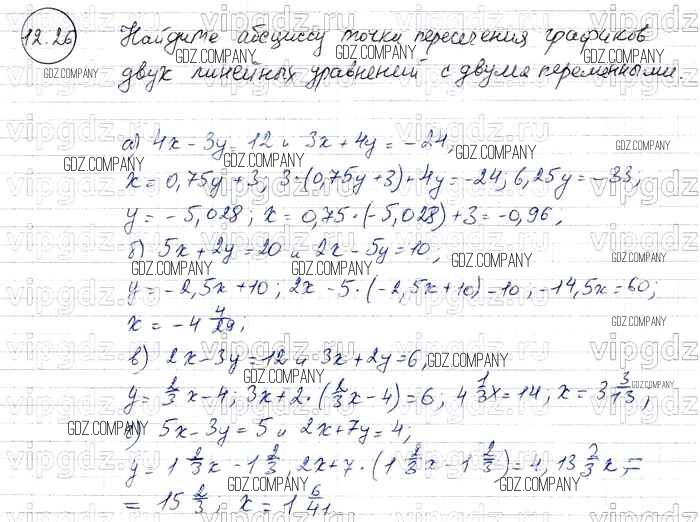 12.26 Найдите абсциссу точки пересечения графиков
двух линейных уравнений с двумя переменными.
а) 4x - 3y = 12 и 3x + 4y = -24,
x = 0,75y + 3; 3·(0,75y + 3) + 4y = -24; 6,25y = -33;
y = -5,028; x = 0,75·(-5,028) + 3 = -0,96,
б) 5x + 2y = 20 и 2x - 5y = 10;
y = -2,5x + 10; 2x - 5·(-2,5x + 10) - 10; -14,5x = 60;
x = -4 4/29;
в) 2x - 3y = 12 и 3x + 2y = 6,
y = 2/3 x - 4; 3x + 2·(2/3 x - 4) = 6; 4 1/3 x = 14; x = 3 3/13;
г) 5x - 3y = 5 и 2x + 7y = 4;
y = 1 2/3 x - 1 2/3; 2x + 7·(1 2/3 x - 1 2/3) = 4, 13 2/3 x =
= 15 2/3; x = 1 6/41.